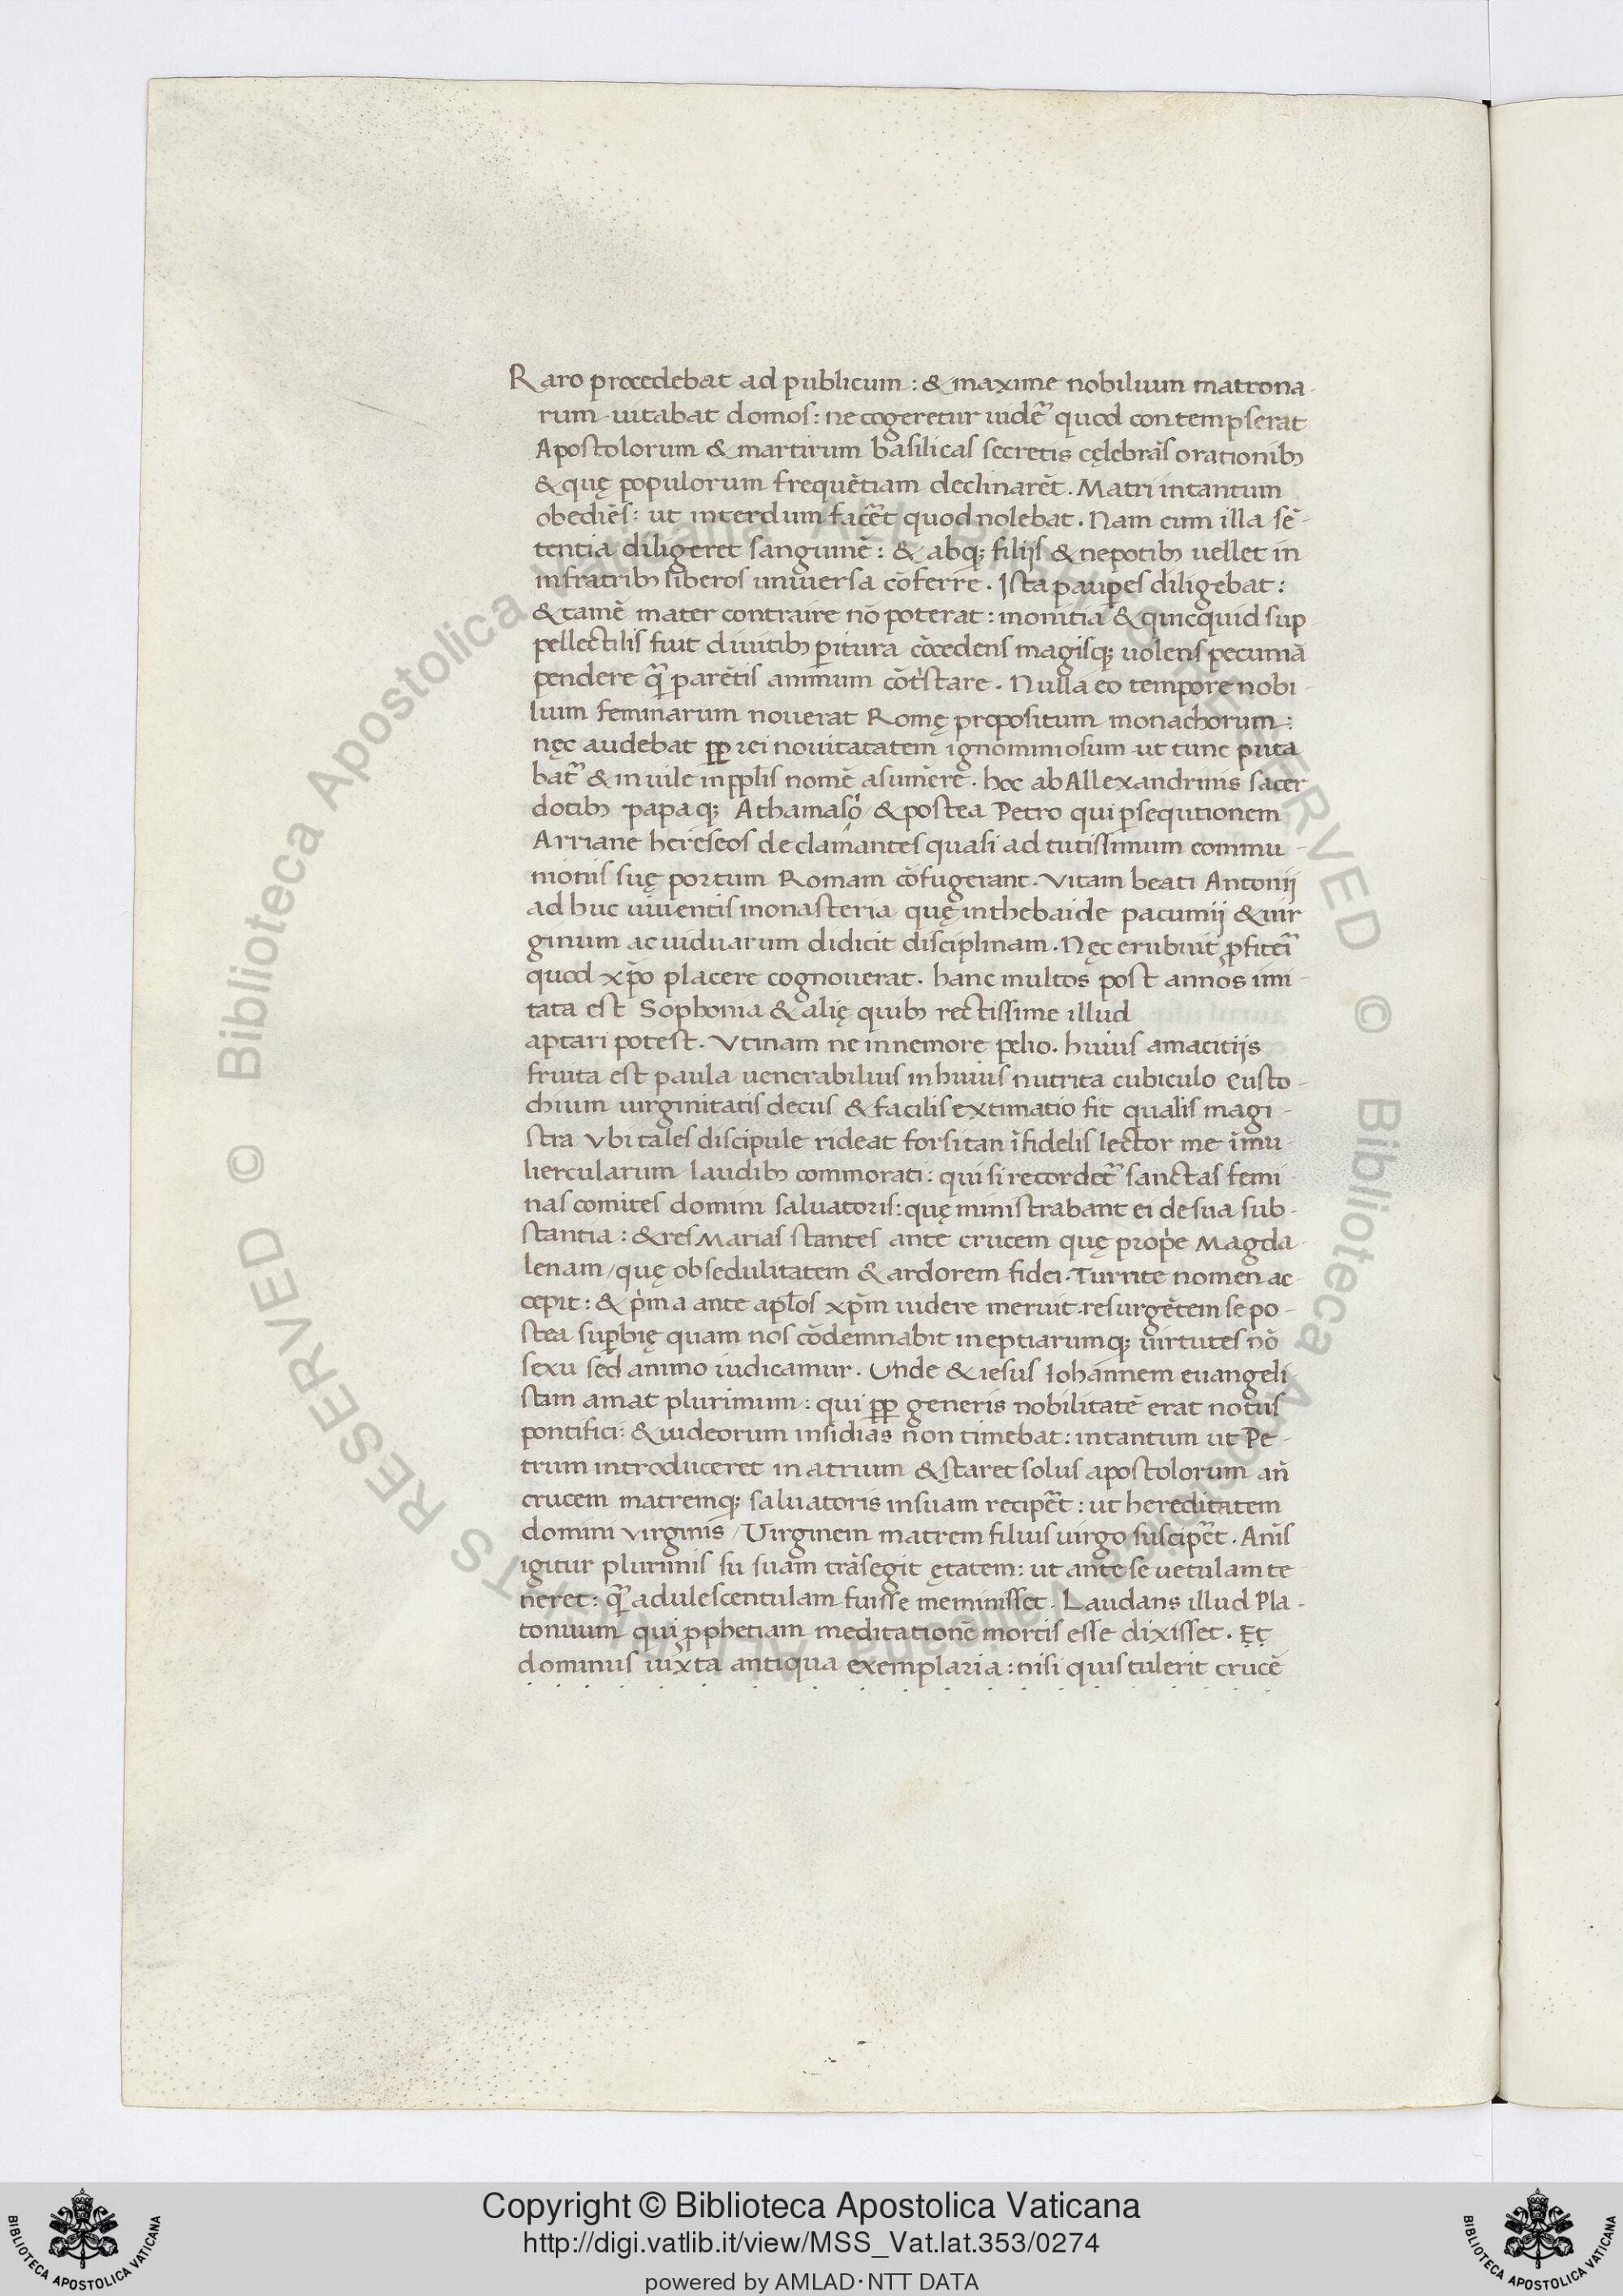 Raro procedebat ad publicum : & maxime nobilium matrona-
rum uitabat domos : ne cogeretur uidẽ quod contempserat
Apostolorum & martirum basilicas secretis cęlebrãs orationibꝫ
& quę populorum frequẽtiam declinarẽt . Matri intantum
obediẽs : ut interdum facẽt quod nolebat . Nam cum illa sẽ-
tentia diligeret sanguinẽ : & absqꝫ filijs & nepotibꝫ uellet in
infratribꝫ liberos uniuersa cõferre . Ista paup̱es diligebat :
& tamẽ mater contraire nõ poterat : monitia & quicquid sup
pellectilis fuit diuitibꝫ p̱itura cõcedens magisqꝫ uolens pecuniã
pendere q̃ parẽtis animum cõtʼstare . Nulla eo tempore nobi-
lium feminarum nouerat Romę propositum monachorum :
nęc audebat ꝓꝑ rei nouitatatem ignominiosum ut tunc puta
bat̃ & inuile inpp̱lis nomẽ asumere . hoc ab Allexandrinis sacer
dotibꝫ papaqꝫ Athamasio & postea Petro qui p̱sequtionem
Arriane hereseos declamantes quasi ad tutissimum commu-
nionis suę portum Romam cõfugerant . Vitam beati Antonij
ad huc uiuentis monasteria quę inthebaide pacumij & uir
ginum ac uiduarum didicit disciplinam . Nęc erubuit ꝓfitei᷉
quod xp̃o placere cognouerat . hanc multos post annos imi-
tata est Sophonia & alię quibꝫ rectissime illud
aptari potest . Vtinam ne innemore pelio . huius amacitijs
fruita est paula uenerabilius in huius nutrita cubiculo eusto-
chium uirginitatis decus & facilis extimatio fit qualis magi-
stra vbi tales discipule rideat forsitan ĩfidelis lector me ĩmu-
liercularum laudibꝫ commorati : qui si recordet̃ sanctas femi-
nas comites domini saluatoris : quę ministrabant ei de sua sub-
stantia : & res Marias stantes ante crucem quę propʼe Magda-
lenam / quę ob sedulitatem & ardorem fidei . Turrite nomen ac-
cepit : & pʼma ante apl̃os xp̃m uidere meruit . resurgẽtem se po-
stea sup̱bię quam nos cõdemnabit ineptiarumqꝫ uirtutes nõ
sexu sed animo iudicamur . Unde & iesus Iohannem euangeli
stam amat plurimum : qui ꝓꝑ generis nobilitatẽ erat notus
pontifici : & iudeorum insidias non timebat : intantum ut Pe-
trum introduceret in atrium & staret solus apostolorum añ
crucem matremqꝫ saluatoris insuam recipẽt : ut hereditatem
domini virginis / Virginem matrem filius uirgo suscipẽt . Anĩs
igitur plurimis su suam trãsegit ętatem : ut ante se uetulam te
neret : q̃ adulescentulam fuisse meminisset . Laudans illud Pla-
tonium qui ꝓphetiam meditationẽ mortis esse dixisset . Et
dominus iuxta antiqua exemplaria : nisi quis tulerit crucẽ
Copyright © Biblioteca Apostolica Vaticana
http://digi.vatlib.it/view/MSS_Vat.lat.353/0274
powered by AMLAD·NTT DATA